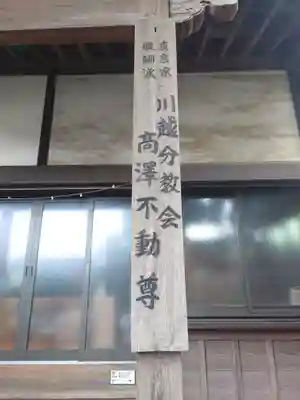 真言宗
醍醐派
川越分教会
高澤不動尊